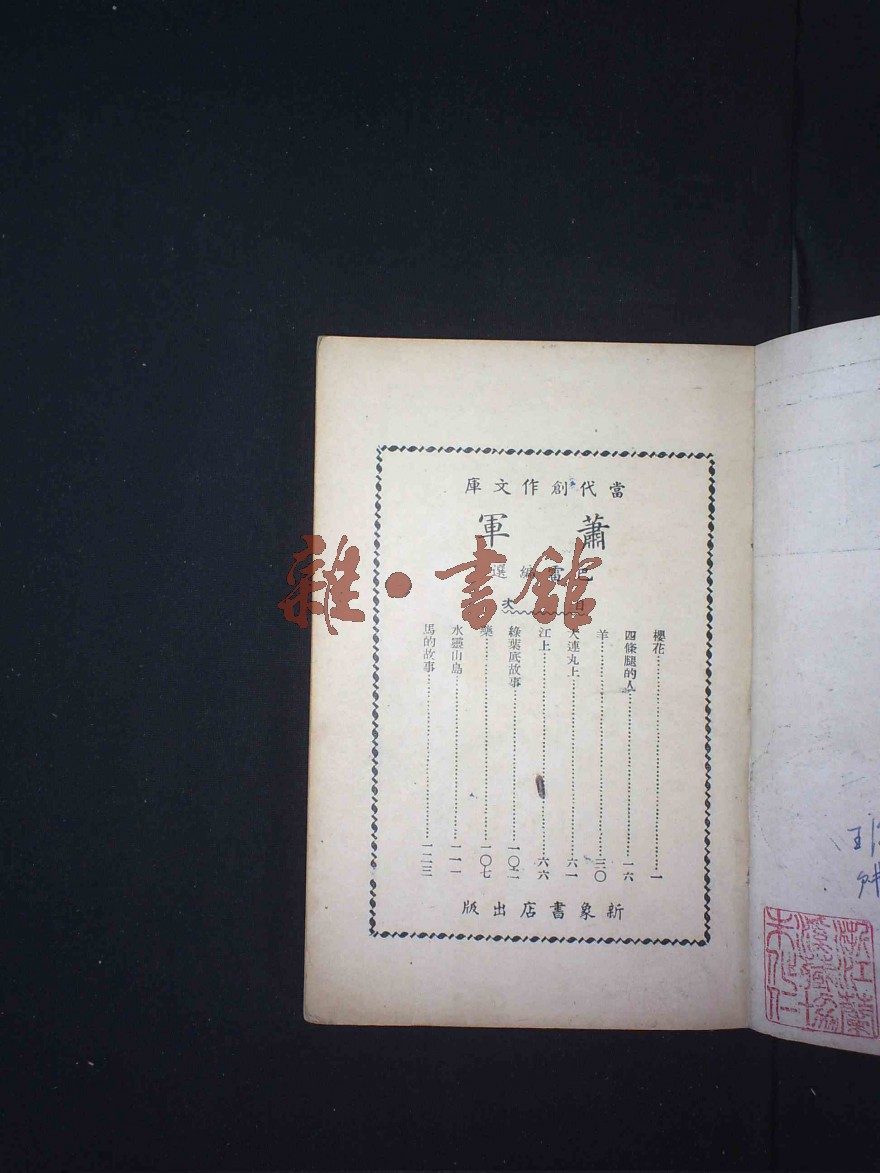 當代創作文庫
蕭軍
巴雷編選
目次
櫻花⋯⋯一
四條腿的人⋯⋯一六
羊⋯⋯三〇
大連丸上⋯⋯六一
江上⋯⋯六六
綠葉底故事⋯⋯一〇二
藥⋯⋯一〇七
水靈山島⋯⋯一一一
馬的故事⋯⋯一二三
新象書店出版
雜·書館